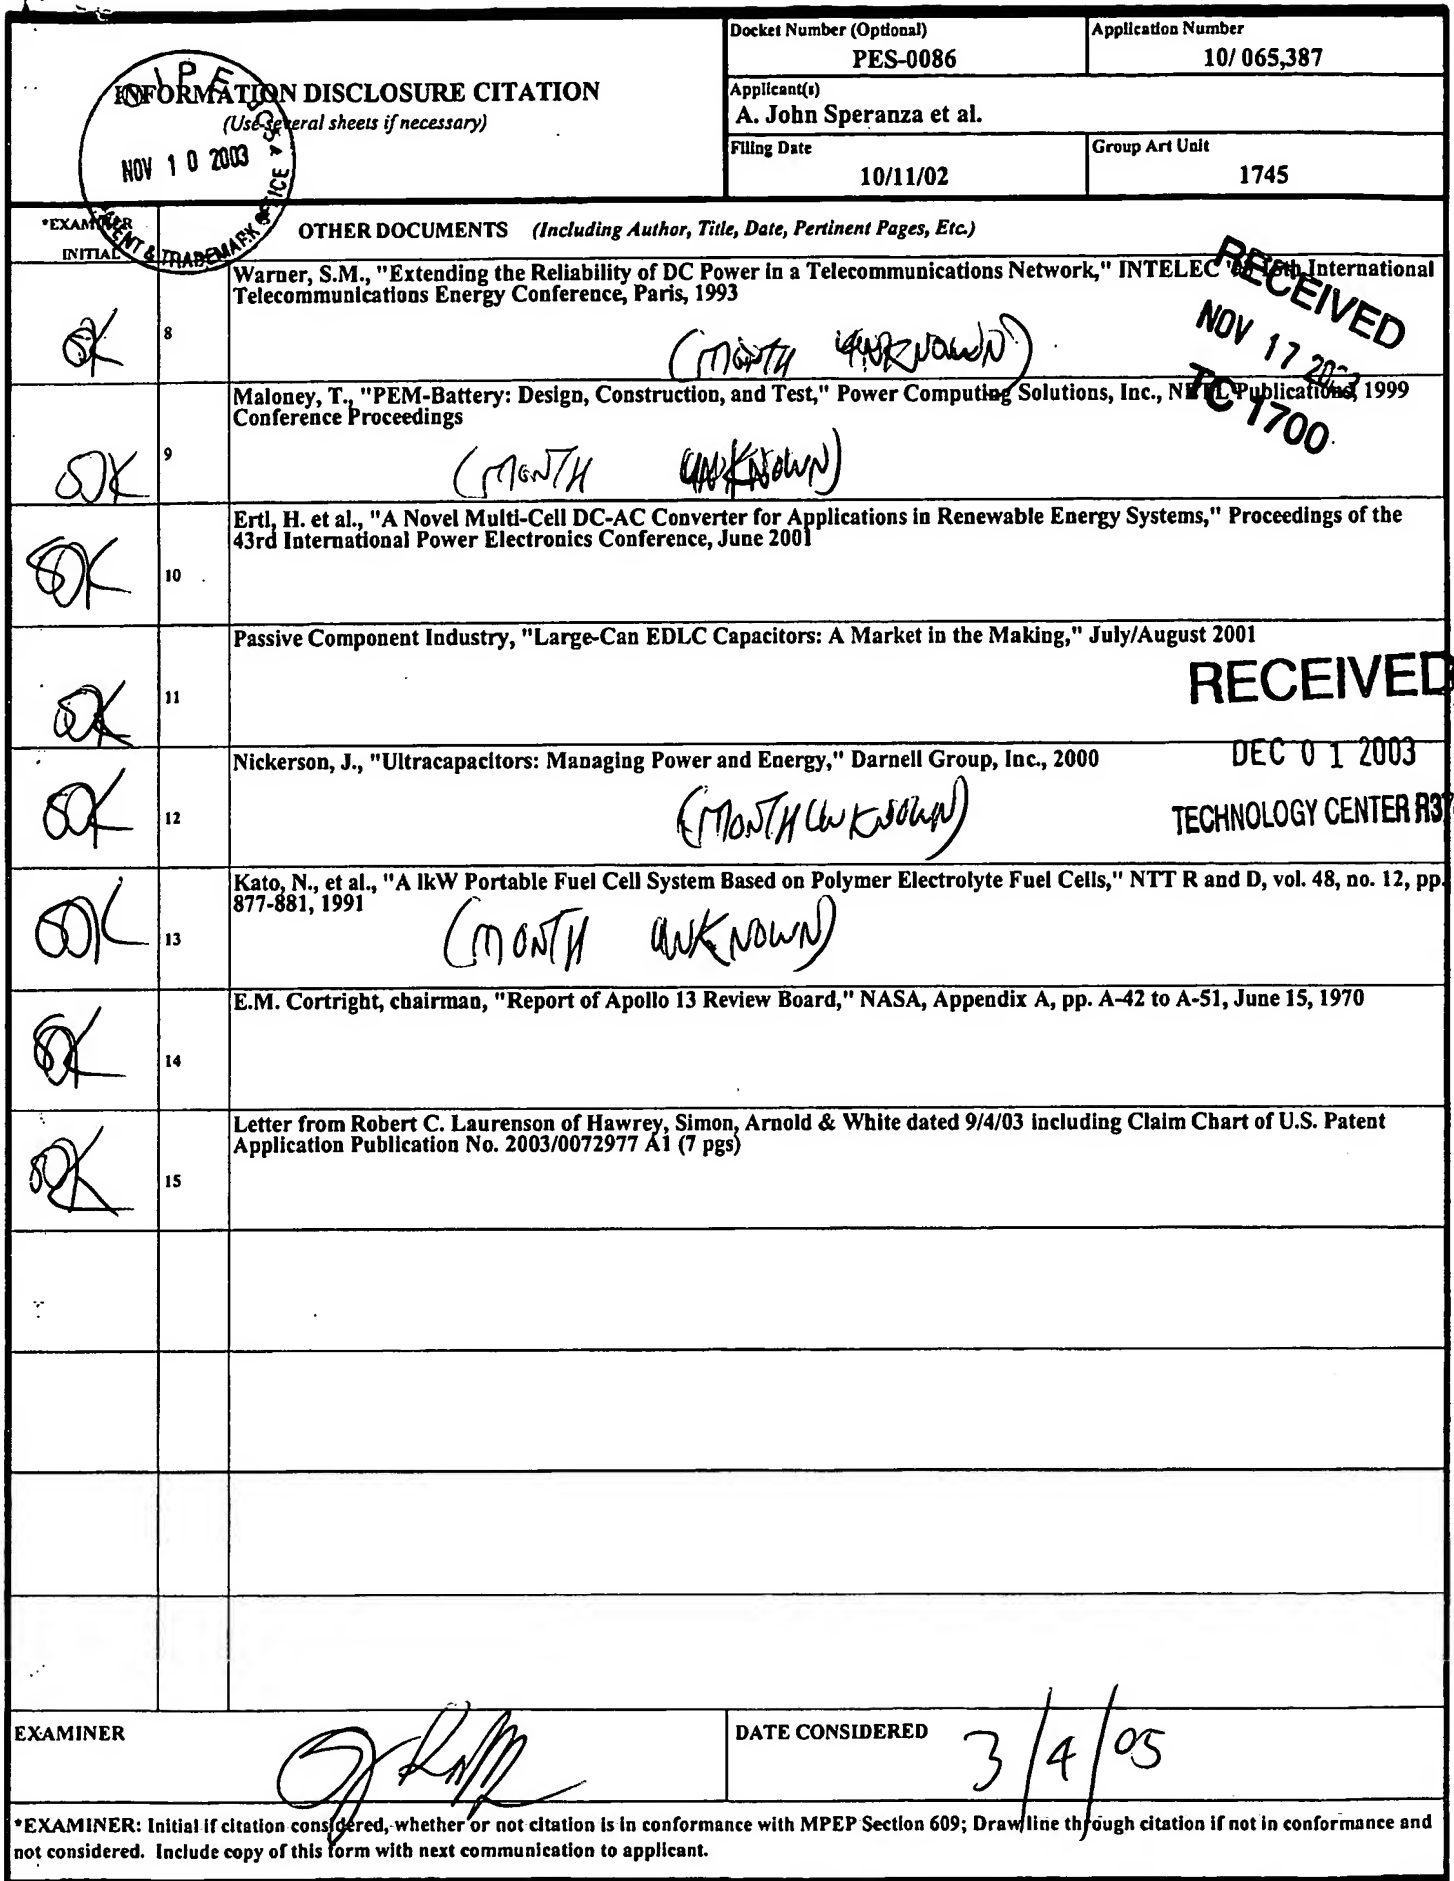 Docket Number (Optional)
PES-0086
Application Number
10/ 065,387
INFORMATION DISCLOSURE CITATION
(Use several sheets if necessary)
Applicant(s)
A. John Speranza et al.
Filing Date
10/11/02
Group Art Unit
1745
O I P E JCSA
NOV 1 0 2003
PATENT & TRADEMARK OFFICE
*EXAMINER
INITIAL
OTHER DOCUMENTS (Including Author, Title, Date, Pertinent Pages, Etc.)
RECEIVED
NOV 17 2003
TC 1700
Warner, S.M., "Extending the Reliability of DC Power in a Telecommunications Network," INTELEC 15th International
Telecommunications Energy Conference, Paris, 1993
8
(MONTH UNKNOWN)
Maloney, T., "PEM-Battery: Design, Construction, and Test," Power Computing Solutions, Inc., NETL Publications, 1999
Conference Proceedings
9
(MONTH UNKNOWN)
Ertl, H. et al., "A Novel Multi-Cell DC-AC Converter for Applications in Renewable Energy Systems," Proceedings of the
43rd International Power Electronics Conference, June 2001
10
Passive Component Industry, "Large-Can EDLC Capacitors: A Market in the Making," July/August 2001
11
RECEIVED
DEC 0 1 2003
TECHNOLOGY CENTER R37
Nickerson, J., "Ultracapacitors: Managing Power and Energy," Darnell Group, Inc., 2000
12
(MONTH UNKNOWN)
Kato, N., et al., "A lkW Portable Fuel Cell System Based on Polymer Electrolyte Fuel Cells," NTT R and D, vol. 48, no. 12, pp.
877-881, 1991
13
(MONTH UNKNOWN)
E.M. Cortright, chairman, "Report of Apollo 13 Review Board," NASA, Appendix A, pp. A-42 to A-51, June 15, 1970
14
Letter from Robert C. Laurenson of Hawrey, Simon, Arnold & White dated 9/4/03 including Claim Chart of U.S. Patent
Application Publication No. 2003/0072977 A1 (7 pgs)
15
EXAMINER
DATE CONSIDERED
3/4/05
*EXAMINER: Initial if citation considered, whether or not citation is in conformance with MPEP Section 609; Draw line through citation if not in conformance and
not considered. Include copy of this form with next communication to applicant.